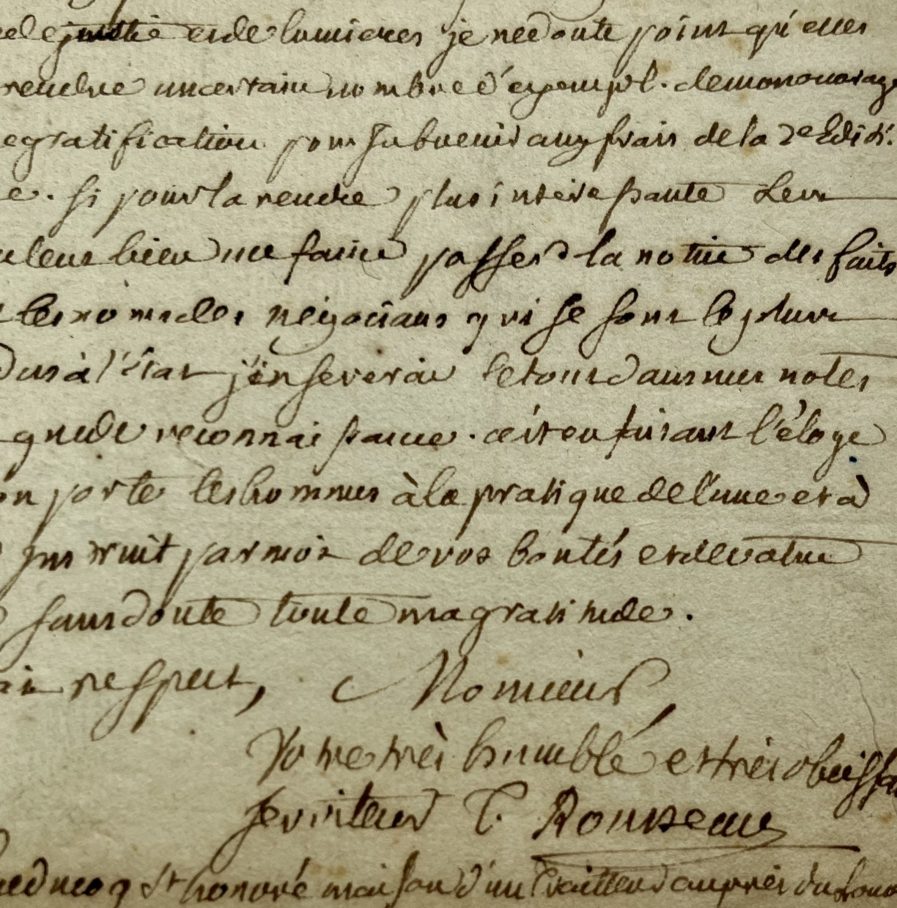 de justice et de lumieres je ne doute point qu'elles
rendre un certain nombre d'exempl. de mon ouvrage
gratification pour subvenir aux frais de la 2e Editi.
e. si pour la rendre plus intéressante
bien me faire passer la notice des faits
les noms des négocians qui se sont le plus
à l'Etat j'inserérai le tout dans mes notes
que de reconnaissance. c'est en faisant l'éloge
on porte les hommes à la pratique de l'une et à
instruit par moi de vos bontés et de votre
sans doute toute ma gratitude.
respect, Monsieur
Votre très humble et très obéissa
serviteur T. Rousseau
du coq St honoré maison d'un Traitteur auprès du Louv